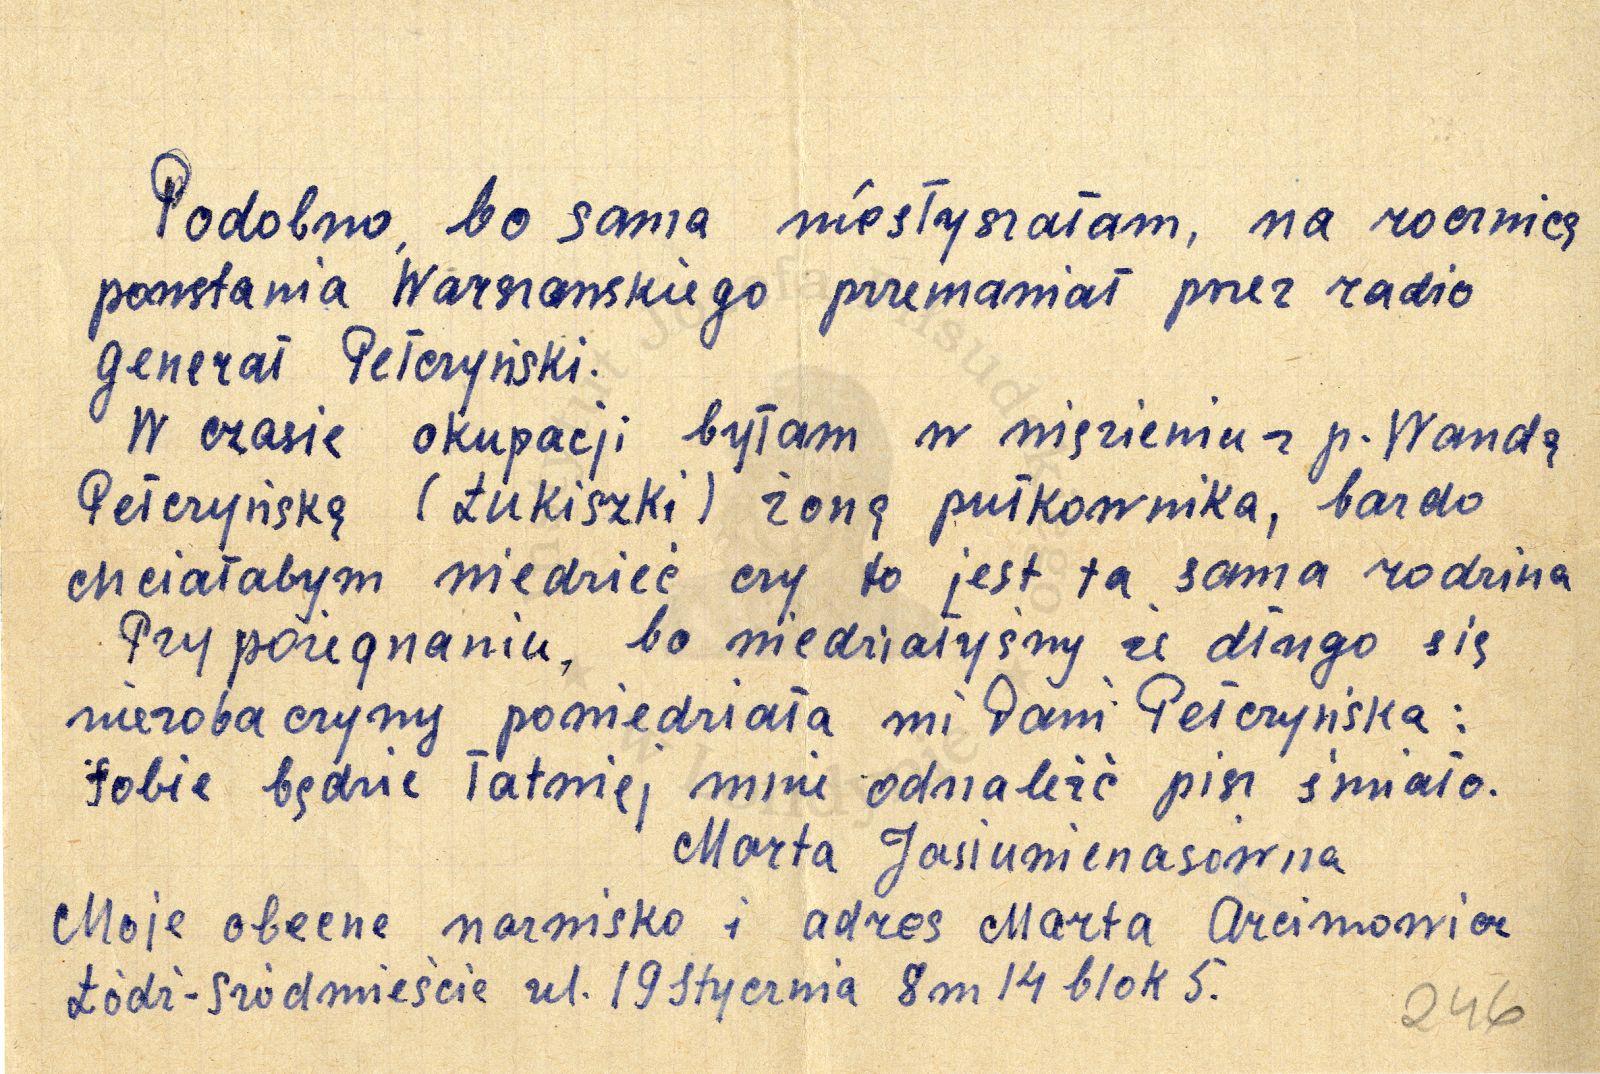 Podobno, bo sama niesłyszałam, na rocznicę
powstania Warszawskiego przemawiał przez radio
generał Pełczyński.
W czasie okupacji byłam w więzieniu z p. Wandą
Pełczyńską (Łukiszki) żoną pułkownika, bardo
chciałabym wiedzieć czy to jest ta sama rodzina
Przy pożegnaniu, bo wiedziałyśmy że długo się
niezobaczymy powiedziała mi Pani Pełczyńska:
Tobie będzie łatwiej mnie odnaleźć pisz śmiało.
Marta Jasiunienasówna
Moje obecne nazwisko i adres Marta Arcimowicz
Łódź-Sródmieście ul. 19 Stycznia 8 m 14 blok 5.
246
Instytut Józefa Piłsudskiego
w Londynie